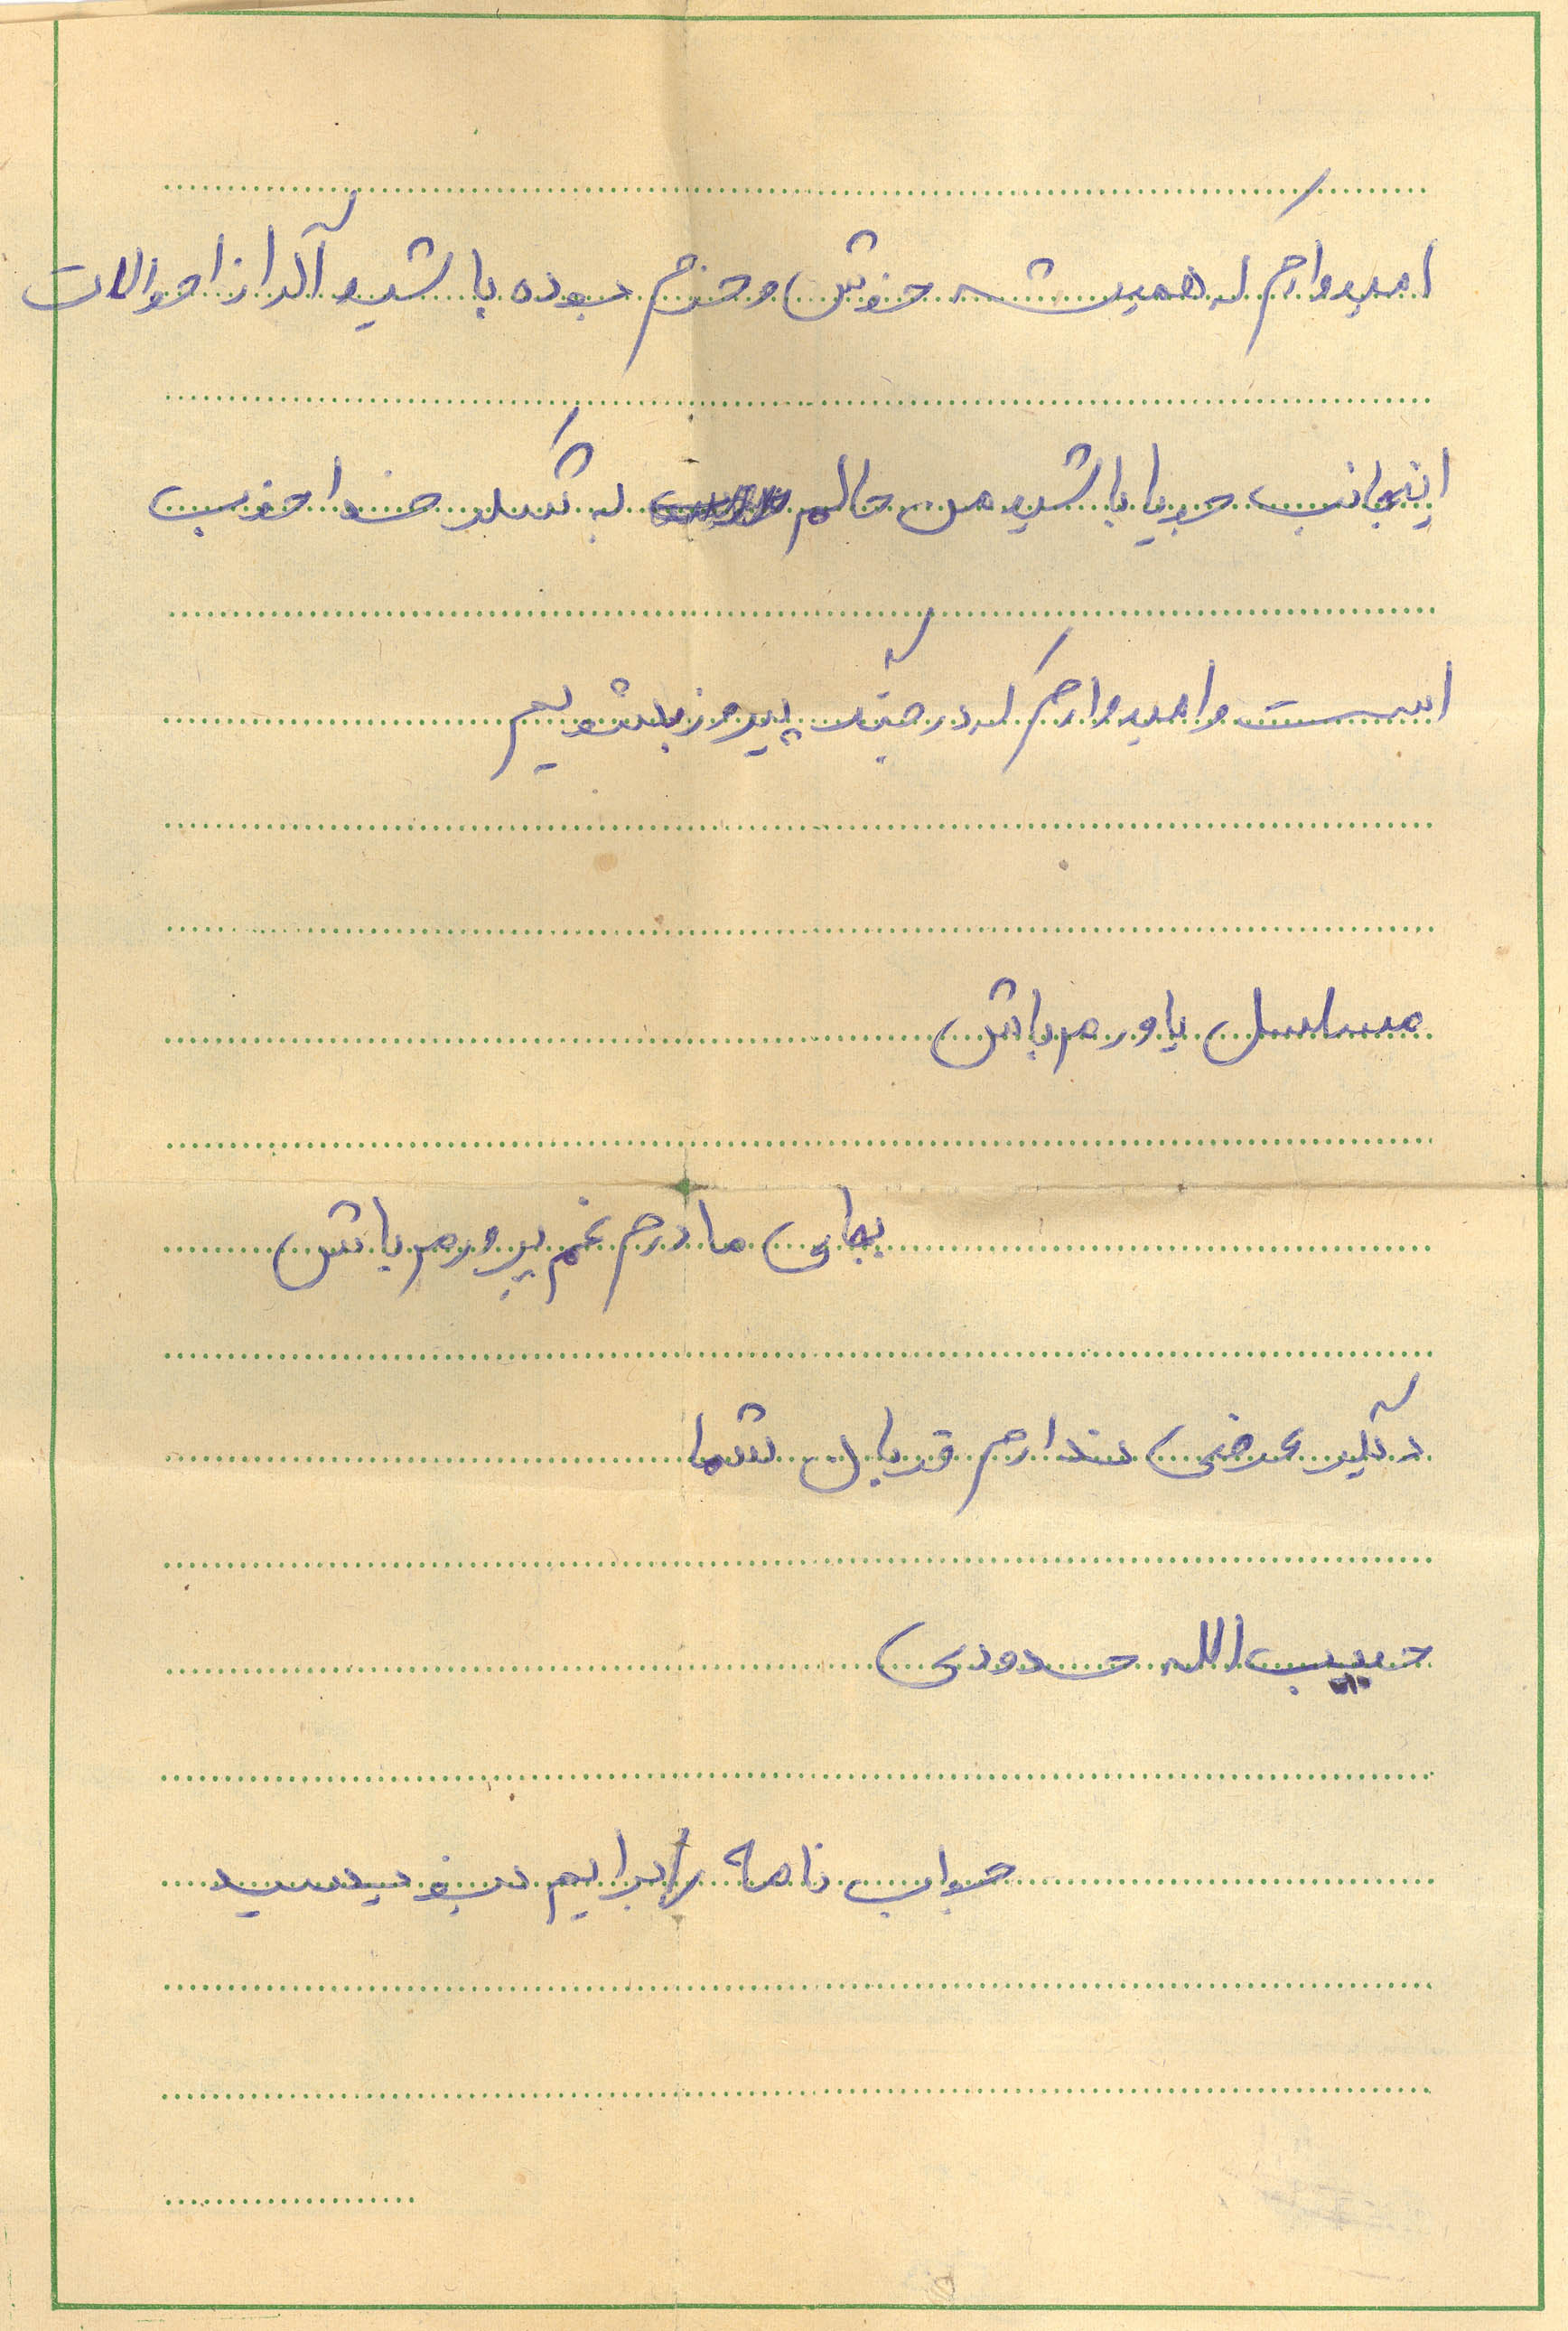 امیدوارم که همیشه خوش و خرم بوده باشید اگر از احوالات
اینجانب جویا باشید من حالم به شکر خدا خوب
است و امیدوارم که در جنگ پیروز بشویم
مسلسل یاورم باش
بجای مادرم غم پرورم باش
دیگر عرضی ندارم قربان شما
حبیب الله حدودی
جواب نامه را برایم بنویسید